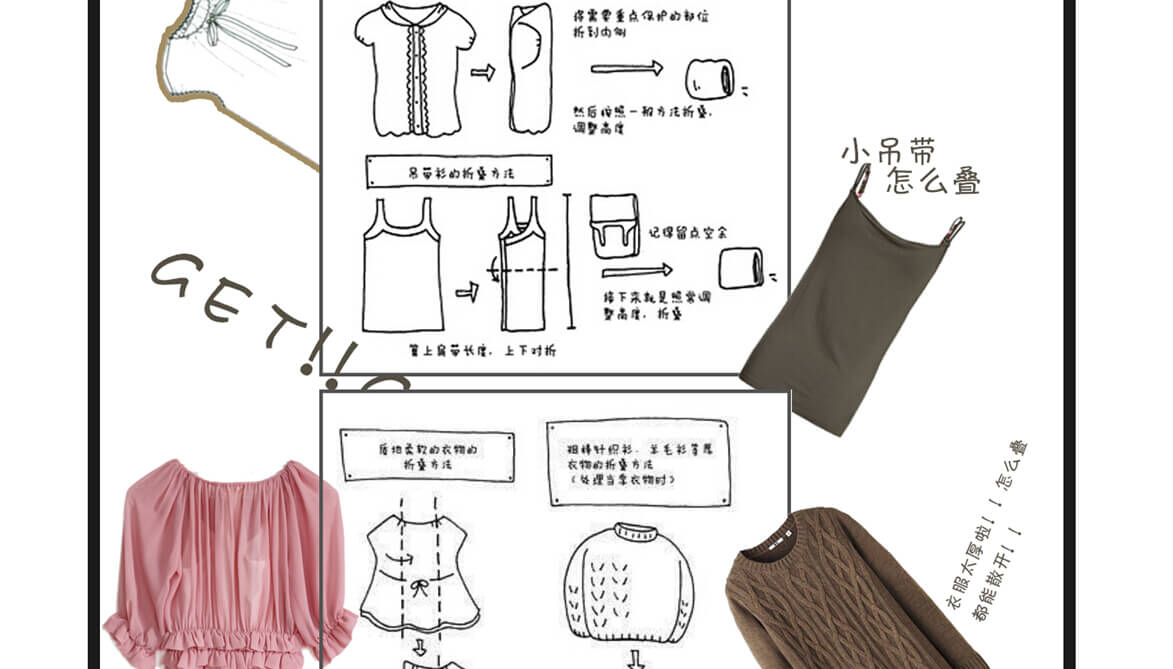 将需要重点保护的部位
折到内侧
然后按照一般方法折叠,
调整高度
吊带衫的折叠方法
记得留点空余
接下来就是照常调
整高度, 折叠
算上肩带长度, 上下对折
小吊带
怎么叠
GET!!
质地柔软的衣物的
折叠方法
粗棒针织衫、羊毛衫等厚
衣物的折叠方法
(处理当季衣物时)
衣服太厚啦!!怎么叠
都能散开!!